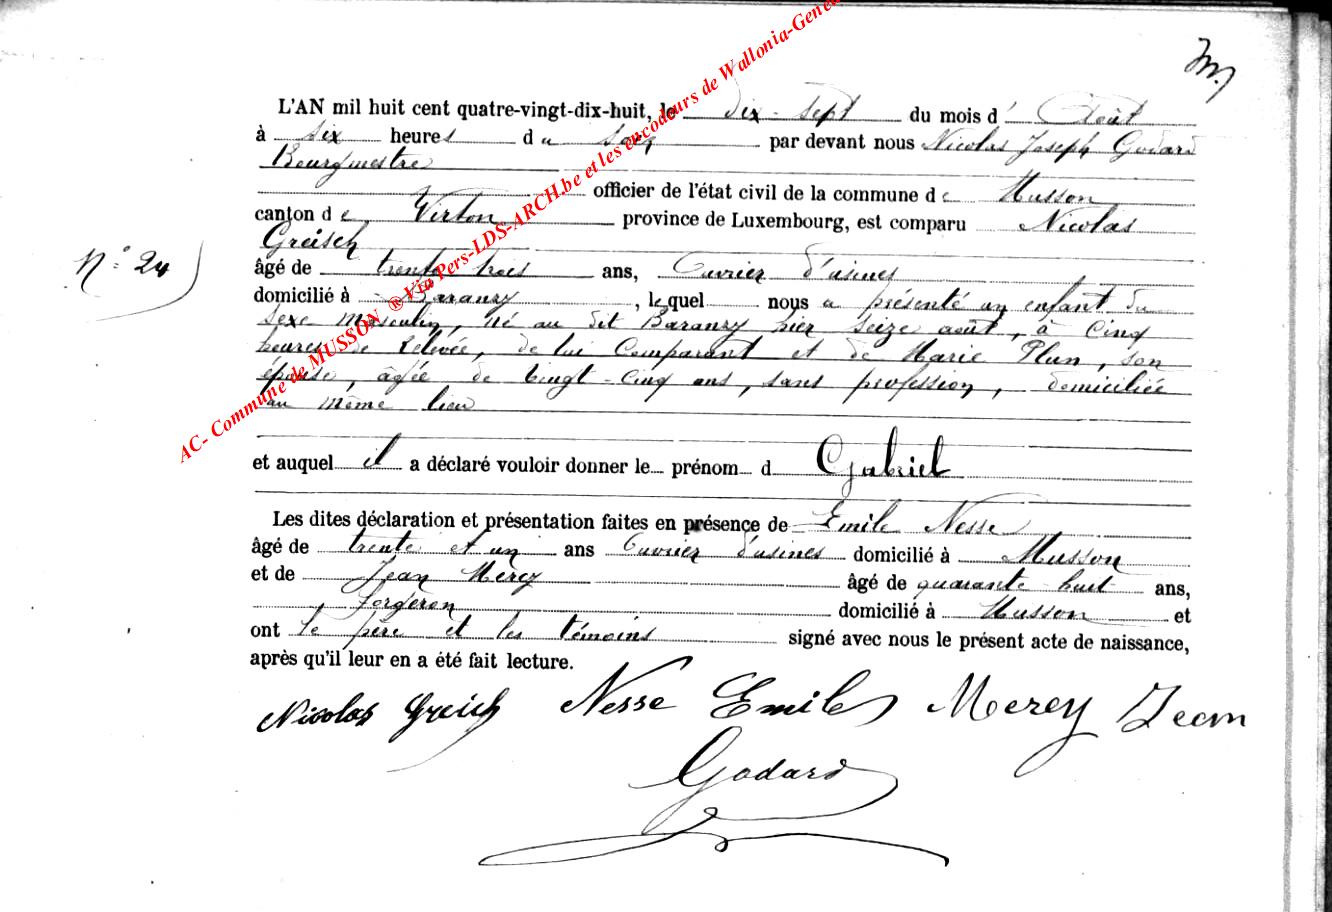 L'AN mil huit cent quatre-vingt-dix-huit, le dix-sept du mois d' Août
à six heures du soir par devant nous Nicolas Joseph Godard
Bourgmestre
officier de l'état civil de la commune de Musson
canton de Virton province de Luxembourg, est comparu Nicolas
Greisch
âgé de trente trois ans, Ouvrier d'usines
domicilié à Baranzy, lequel nous a présenté un enfant du
sexe masculin, né au dit Baranzy hier seize août, à cinq
heures de relevée, de lui Comparant et de Marie Plun, son
épouse, âgée de vingt-cinq ans, sans profession, domiciliée
au même lieu
et auquel il a déclaré vouloir donner le prénom d Gabriel
Les dites déclaration et présentation faites en présence de Emile Nesse
âgé de trente et un ans Ouvrier d'usines domicilié à Musson
et de Jean Mercy âgé de quarante huit ans,
forgeron domicilié à Musson et
ont le père et les témoins signé avec nous le présent acte de naissance,
après qu'il leur en a été fait lecture.
Nicolas Greisch Nesse Emile Merey Jean
Godard
N° 24
AC- Commune de MUSSON ® Via Pers-LDS-ARCH.be et les encodeurs de Wallonia-Gene